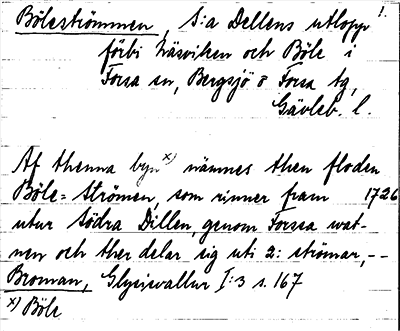 Böleströmmen, S:a Dellens utlopp 1.
förbi Näsviken och Böle i
Forsa sn, Bergsjö o Forsa tg,
Gävleb. l.
Af thenna byn x) nämnes then floden
Böle-Strömen, som rinner fram 1726
utur Södra Dillen, genom Forssa wat-
nen och ther delar sig uti 2: strömar, --
Broman, Glysisvallur I:3 s. 167
x) Böle